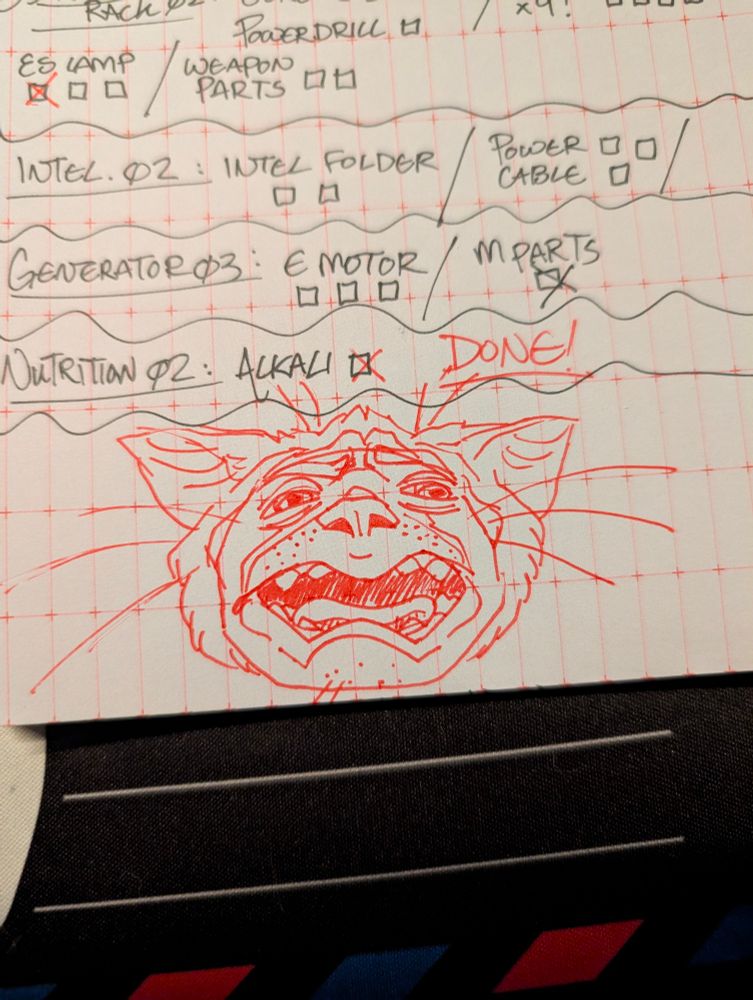 RACK Ø2:
POWERDRILL
x9!
ES LAMP / WEAPON PARTS
INTEL. Ø2: INTEL FOLDER / POWER CABLE /
GENERATOR Ø3: E MOTOR / M PARTS
NUTRITION Ø2: ALKALI DONE!